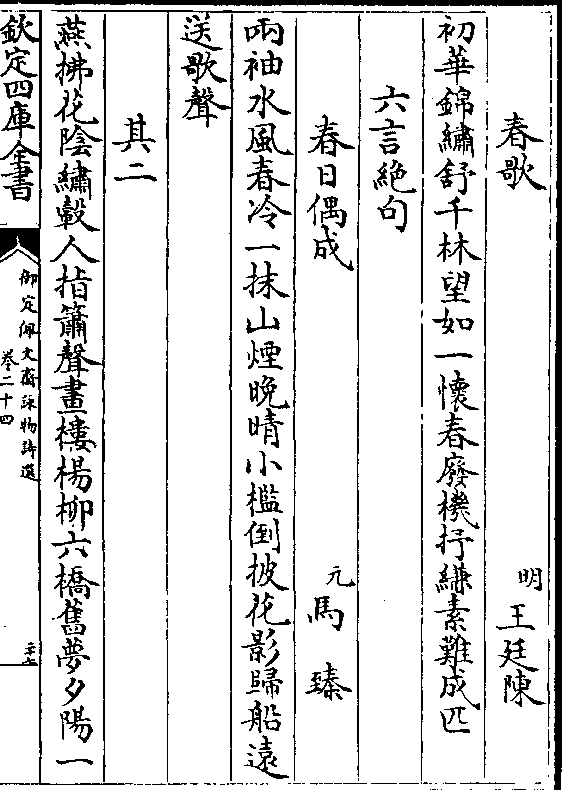 春歌 明 王廷陳
初華錦繡舒千林望如一懷春廢機抒縑素難成匹
六言絶句
春日偶成 元 馬臻
兩袖水風春冷一抹山煙晚晴小檻倒披花影歸船遠
送歌聲
其二
燕拂花陰繡轂人指簫聲畫樓楊柳六橋舊夢夕陽一
欽定四庫全書
御定佩文齋詠物詩選
卷二十四